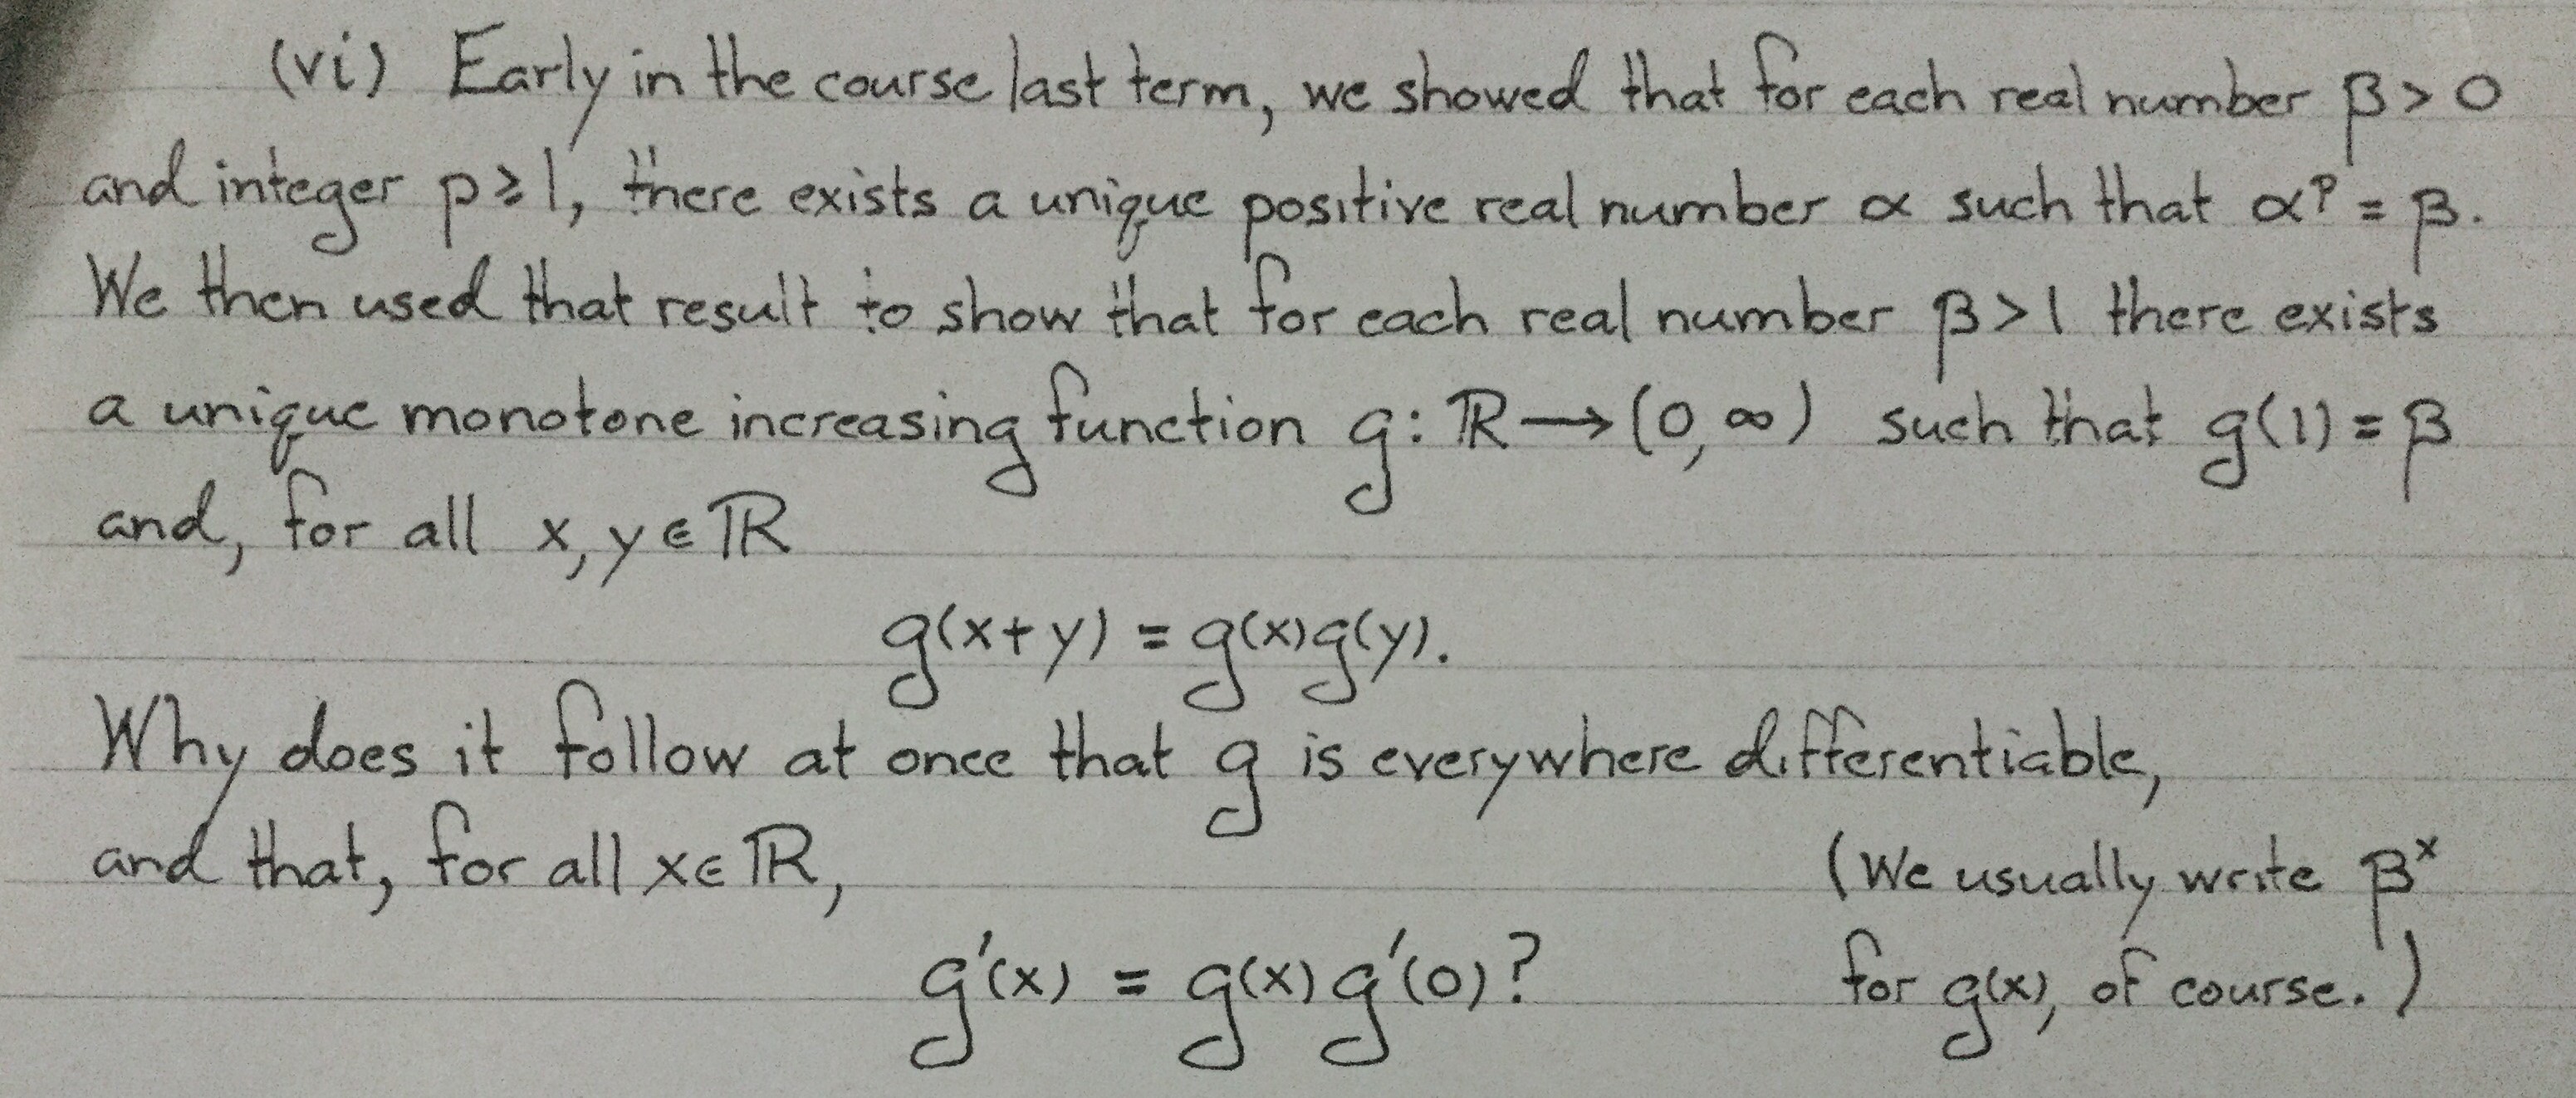 (vi) Early in the course last term, we showed that for each real number β > 0
and integer p ≥ 1, there exists a unique positive real number α such that α^p = β.
We then used that result to show that for each real number β > 1 there exists
a unique monotone increasing function g: ℝ → (0, ∞) such that g(1) = β
and, for all x, y ∈ ℝ
g(x+y) = g(x)g(y).
Why does it follow at once that g is everywhere differentiable,
and that, for all x ∈ ℝ, (We usually write β^x
g'(x) = g(x)g'(0)? for g(x), of course.)